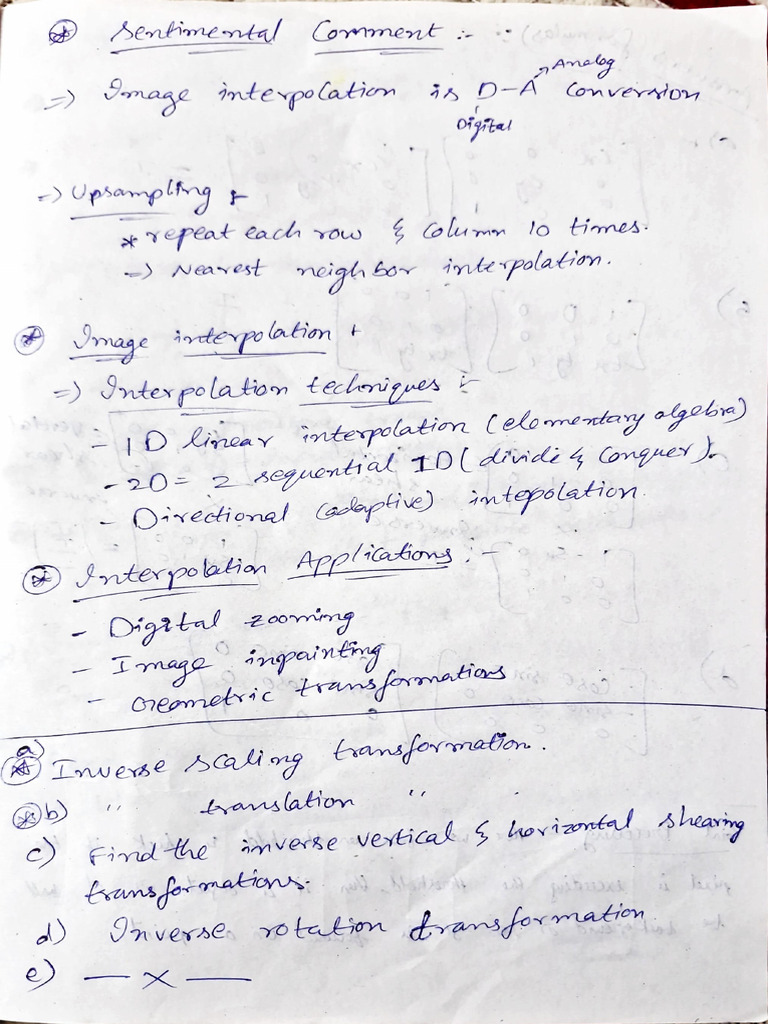 Sentimental Comment :-
=> Image interpolation is D-A conversion
Analog
Digital
=> Upsampling :-
* repeat each row & column 10 times.
=> Nearest neighbor interpolation.
Image interpolation :-
=> Interpolation techniques :-
- 1D linear interpolation (elementary algebra)
- 2D = 2 sequential 1D (divide & conquer).
- Directional (adaptive) intepolation.
Interpolation Applications :-
- Digital zooming
- Image inpainting
- Geometric transformations
a) Inverse scaling transformation.
b) " translation "
c) Find the inverse vertical & horizontal shearing
transformations.
d) Inverse rotation transformation
e) — x —